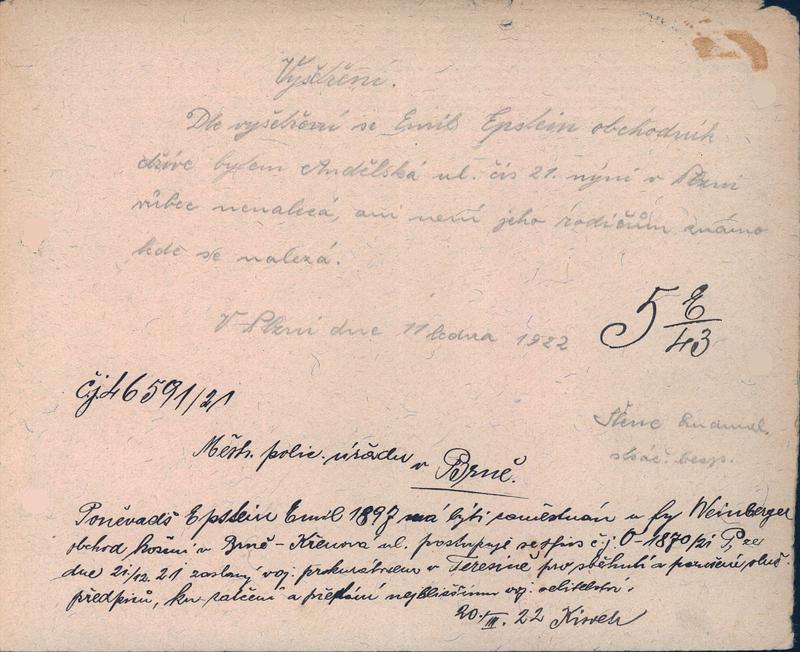 Vyšetření.
Dle vyšetření se Emil Epstein obchodník
dříve bytem Andělská ul. čís 21. nyní v Plzni
vůbec nenalezá, ani není jeho rodičům známo
kde se nalezá.
V Plzni dne 11 ledna 1922
5 E/43
čj. 46591/21
Městs. polic. úřadu v Brně.
Poněvadž Epstein Emil 1897 má býti zaměstnán u fy Weinberger
obchod kožmi v Brně - Křenová ul. postupuje se čj. O-1870/21
dne 21/12. 21 zaslaný voj. prokurátorem v Terezíně pro sběhnutí a porušení
předpisů, ku zatčení a předání nejbližšímu voj. velitelství.
20./III. 22